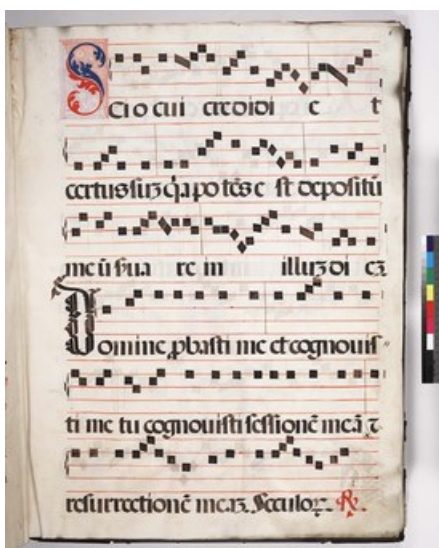 Scio cui credidi et
certus suʒ q̃a potẽs est depositũ
meũ serua re in illuʒ di eʒ
Domine ꝓbasti me et cognouis
ti me tu cognouisti sessionẽ meã ⁊
resurrectionẽ meaʒ. Seculoꝝ. ℟.